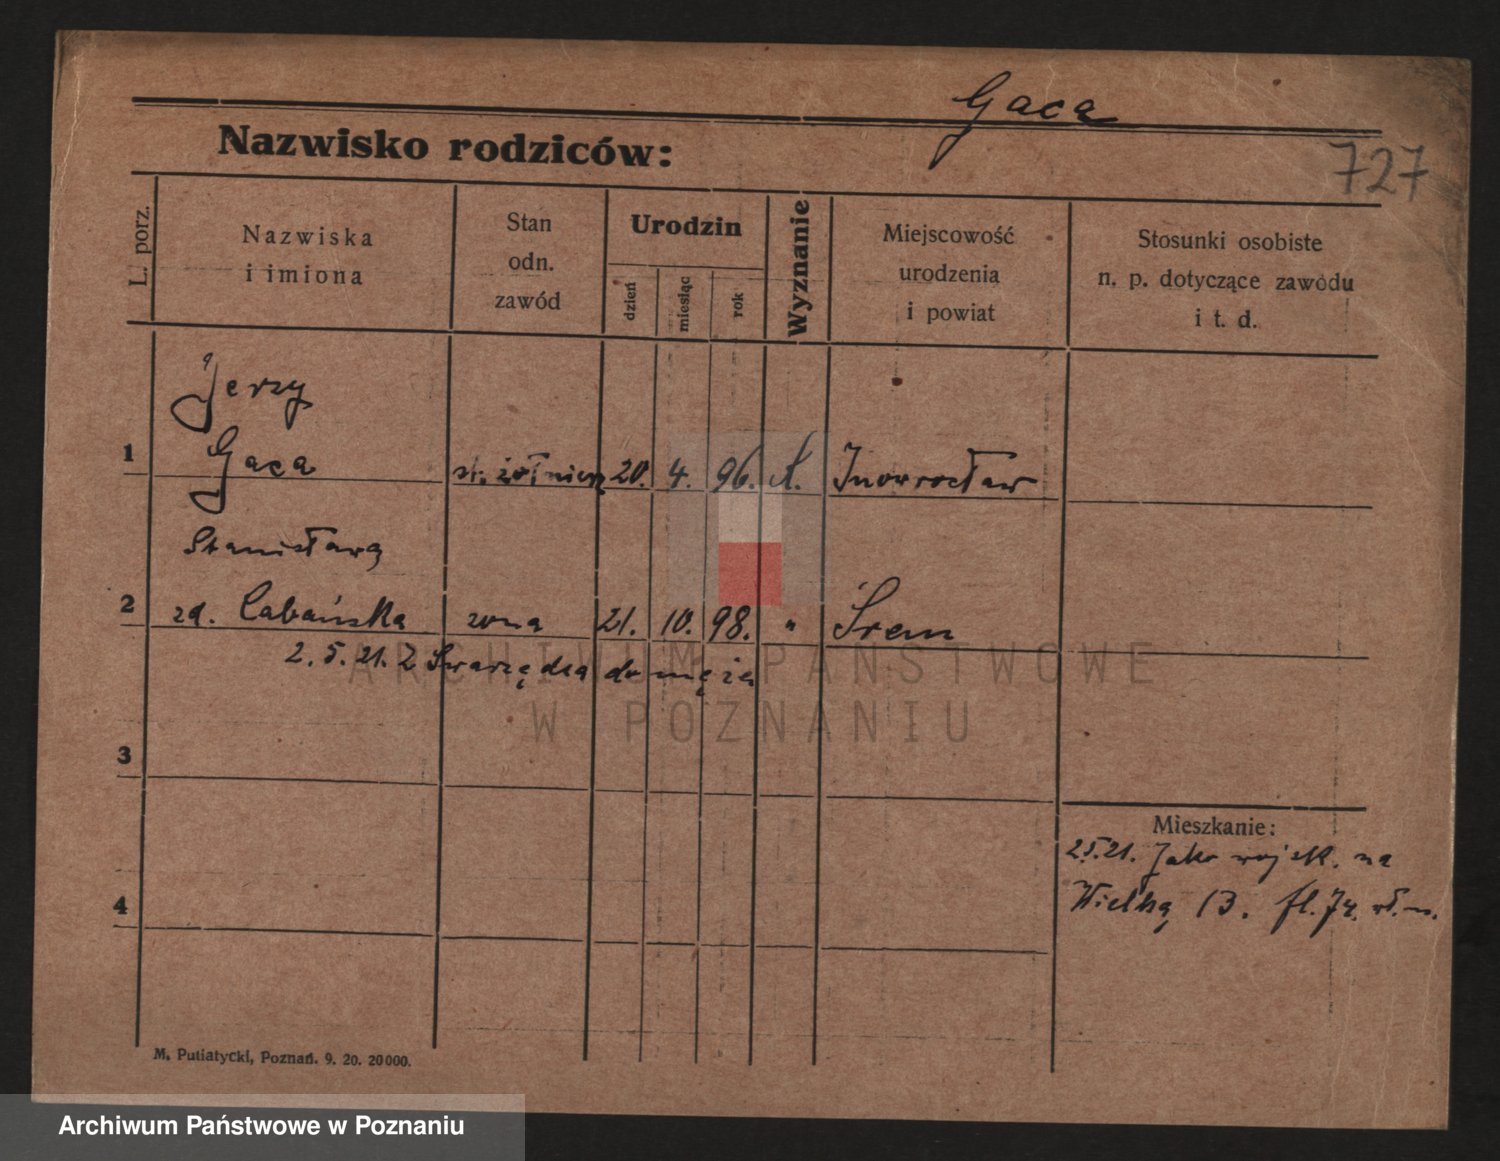 Gaca
727
Nazwisko rodziców:
L. porz.
Nazwiska
i imiona
Stan
odn.
zawód
Urodzin
dzień
miesiąc
rok
Wyznanie
Miejscowość
urodzenia
i powiat
Stosunki osobiste
n. p. dotyczące zawodu
i t. d.
Jerzy
1 Gaca st. żołnierz 20. 4. 96. k. Inowrocław
Stanisława
2 zd. Cabańska żona 21. 10. 98. " Śrem
2. 5. 21. Z Swarzędza do męża
ARCHIWUM PAŃSTWOWE
W POZNANIU
3
Mieszkanie:
2.5.21. Jako wojsk. na
4 Wielką 13.
M. Putiatycki, Poznań. 9. 20. 20000.
Archiwum Państwowe w Poznaniu